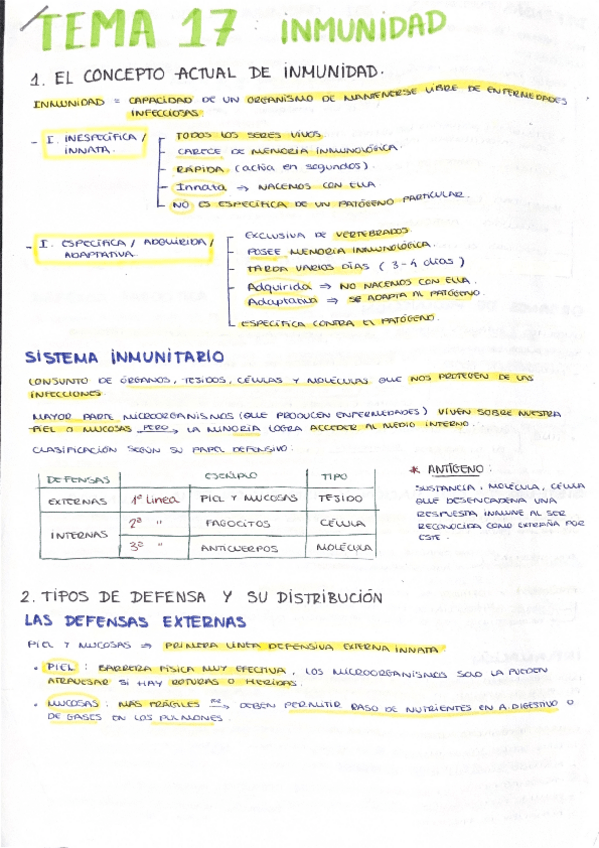 TEMA 17: INMUNIDAD
1. EL CONCEPTO ACTUAL DE INMUNIDAD.
INMUNIDAD = CAPACIDAD DE UN ORGANISMO DE MANTENERSE LIBRE DE ENFERMEDADES
INFECCIOSAS.
- I. INESPECÍFICA /
INNATA.
TODOS LOS SERES VIVOS.
CARECE DE MEMORIA INMUNOLÓGICA.
RÁPIDA (actúa en segundos).
Innata ⇒ NACEMOS CON ELLA
NO ES ESPECÍFICA DE UN PATÓGENO PARTICULAR.
- I. ESPECÍFICA / ADQUIRIDA /
ADAPTATIVA.
EXCLUSIVA DE VERTEBRADOS
POSEE MEMORIA INMUNOLÓGICA.
TARDA VARIOS DÍAS (3-4 días)
Adquirida ⇒ NO NACEMOS CON ELLA.
Adaptativa ⇒ SE ADAPTA AL PATÓGENO.
ESPECÍFICA CONTRA EL PATÓGENO.
SISTEMA INMUNITARIO
CONJUNTO DE ÓRGANOS, TEJIDOS, CÉLULAS Y MOLÉCULAS QUE NOS PROTEGEN DE LAS
INFECCIONES
MAYOR PARTE MICROORGANISMOS (QUE PRODUCEN ENFERMEDADES) VIVEN SOBRE NUESTRA
PIEL O MUCOSAS PERO → LA MINORÍA LOGRA ACCEDER AL MEDIO INTERNO.
CLASIFICACIÓN SEGÚN SU PAPEL DEFENSIVO:
DEFENSAS EJEMPLO TIPO
EXTERNAS 1ª Línea PIEL Y MUCOSAS TEJIDO
INTERNAS 2ª " FAGOCITOS CÉLULA
3ª " ANTICUERPOS MOLÉCULA
* ANTÍGENO:
SUSTANCIA, MOLÉCULA, CÉLULA
QUE DESENCADENA UNA
RESPUESTA INMUNE AL SER
RECONOCIDA COMO EXTRAÑA POR
ESTE.
2. TIPOS DE DEFENSA Y SU DISTRIBUCIÓN
LAS DEFENSAS EXTERNAS
PIEL Y MUCOSAS ⇒ PRIMERA LÍNEA DEFENSIVA EXTERNA INNATA
• PIEL: BARRERA FÍSICA MUY EFECTIVA, LOS MICROORGANISMOS SOLO LA PUEDEN
ATRAVESAR SI HAY ROTURAS O HERIDAS.
• MUCOSAS: MÁS FRÁGILES → DEBEN PERMITIR PASO DE NUTRIENTES EN A. DIGESTIVO O
DE GASES EN LOS PULMONES.